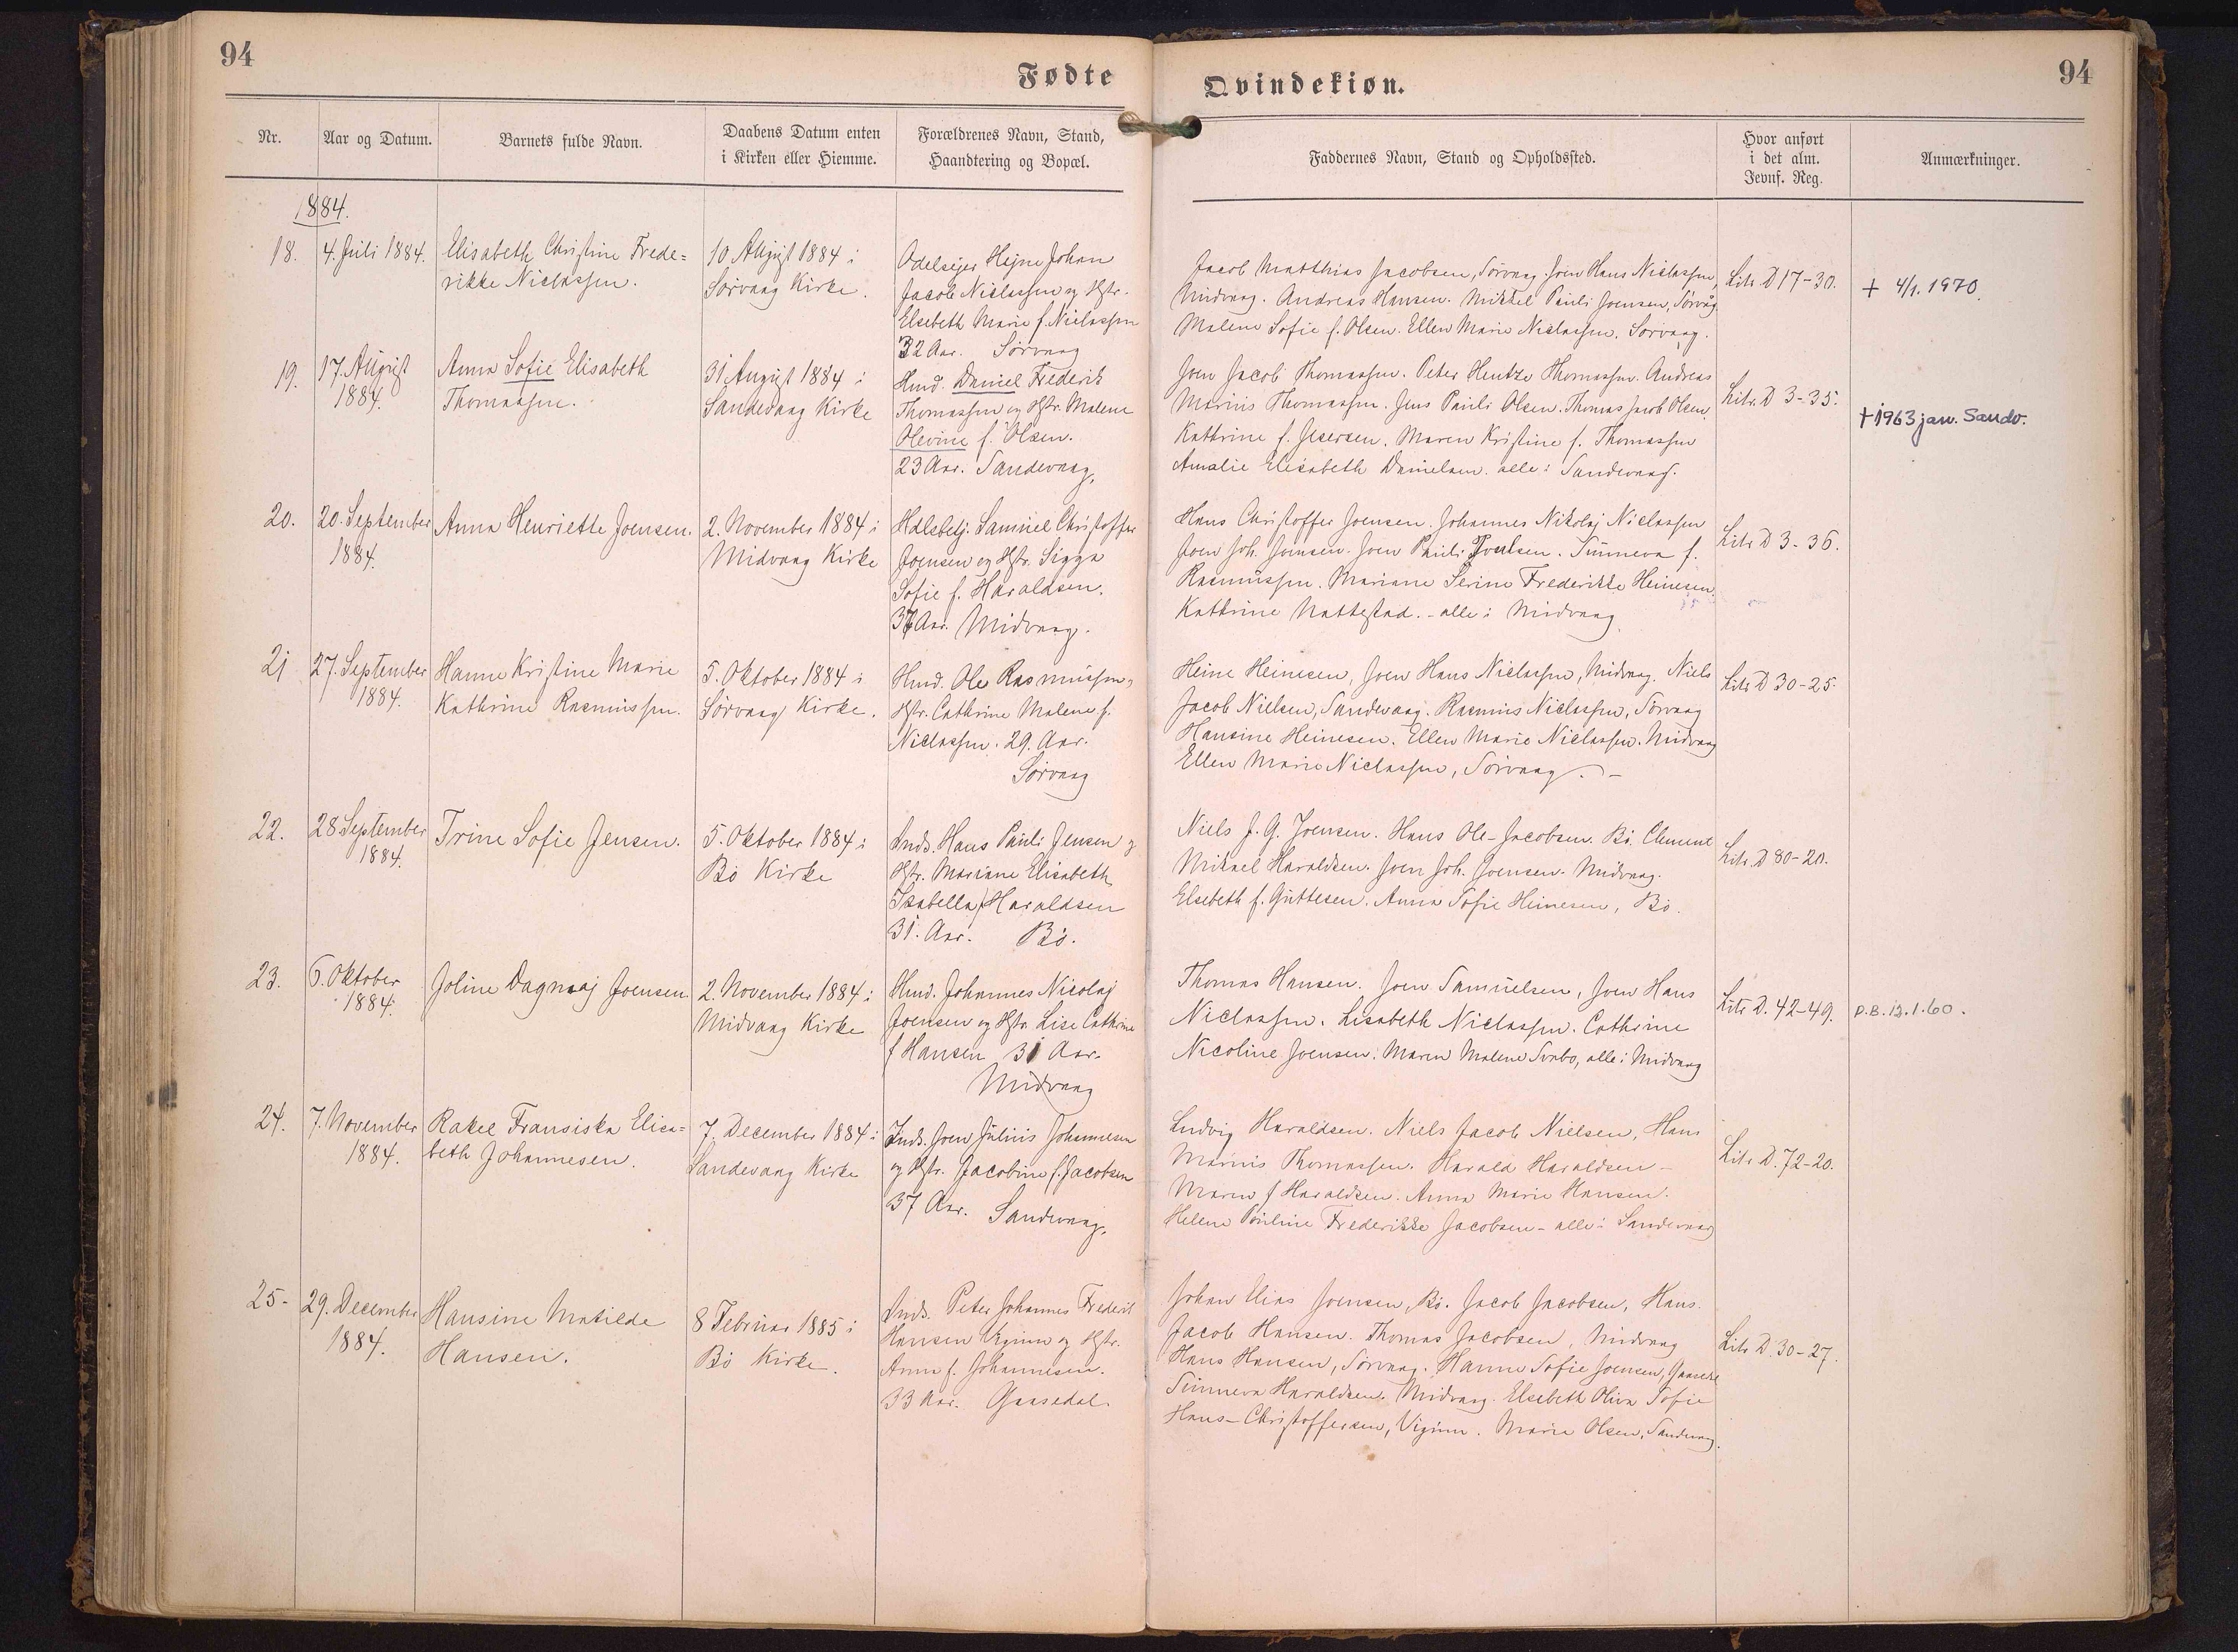 94
Fødte
Nr.
Aar og Datum.
Barnets fulde Navn.
Daabens Datum enten
i Kirken eller Hiemme.
Forældrenes Navn, Stand,
Haandtering og Bopæl.
1884.
18.
4. Juli 1884.
Elisabeth Christine Frede=
rikke Niclassen.
10 August 1884 i
Sørvaag Kirke.
Odelsejer Hejne Johan
Jacob Niclassen og Hstr.
Elsebeth Marie f. Niclassen
32 Aar. Sørvaag
19.
17. August
1884.
Anna Sofie Elisabeth
Thomassen.
31 August 1884 i
Sandevaag Kirke
Hmd. Daniel Frederik
Thomassen og Hstr. Malene
Olevine f. Olsen.
23 Aar. Sandevaag.
20.
20. September
1884.
Anna Henriette Joensen.
2. November 1884 i
Midvaag Kirke
Hdlsbetj. Samuel Christoffer
Joensen og Hstr. Sigga
Sofie f. Haraldsen.
37 Aar. Midvaag.
21
27. September
1884.
Hanne Kristine Marie
Kathrine Rasmussen.
5. Oktober 1884 i
Sørvaag Kirke.
Hmd. Ole Rasmussen,
Hstr. Cathrine Malene f.
Niclassen. 29. Aar.
Sørvaag
22.
28 September
1884.
Trine Sofie Jensen.
5. Oktober 1884 i
Bø Kirke
Inds. Hans Pauli Jensen og
Hstr. Mariane Elisabeth
Isabella f Haraldsen
31. Aar. Bø.
23.
6. Oktober
1884.
Joline Dagmaj Joensen
2. November 1884 i
Midvaag Kirke
Hmd. Johannes Nicolaj
Joensen og Hstr. Lise Cathrine
f Hansen 31 Aar.
Midvaag
24.
7. November
1884.
Rakel Fransiska Elisa=
beth Johannesen.
7. December 1884 i
Sandevaag Kirke
Inds. Joen Julius Johannesen
og Hstr. Jacobine f. Jacobsen
37 Aar. Sandevaag.
25-
29. December
1884.
Hansine Matilde
Hansen.
8 Februar 1885 i
Bø Kirke.
Inds. Peter Johannes Frederik
Hansen og Hstr.
Anna f. Johannesen.
33 Aar. Gaasedal.
94
Qvindekiøn.
Faddernes Navn, Stand og Opholdssted.
Hvor anført
i det alm.
Jevnf. Reg.
Anmærkninger.
Jacob Matthias Jacobsen, Sørvaag. Joen Hans Niclassen,
Midvaag. Andreas Hansen. Mikkel Pauli Joensen, Sørvåg.
Malene Sofie f. Olsen. Ellen Marie Niclassen. Sørvaag.
Litr. D 17-30.
+ 4/1. 1970.
Joen Jacob Thomassen. Peter Hentze Thomassen. Andreas
Marius Thomassen. Jens Pauli Olsen. Thomas Jacob Olsen.
Kathrine f. Maren Kristine f. Thomassen
Amalie Elisabeth Danielsen. alle i Sandevaag.
Litr. D 3-35.
+1963 jan. Sandv.
Hans Christoffer Joensen. Johannes Nikolaj Niclassen
Joen Joh. Joensen. Joen Pauli Poulsen. Sunneva f.
Rasmussen. Mariane Serine Frederikke Heinesen.
Kathrine Nattestad. - alle i Midvaag.
Litr D 3-36.
Heine Heinesen, Joen Hans Niclassen, Midvaag. Niels
Jacob Nielsen, Sandevaag. Rasmus Niclassen, Sørvaag
Hansine Heinesen. Ellen Marie Niclassen. Midvaag
Ellen Marie Niclassen, Sørvaag. -
Litr D 30-25.
Niels J. G. Joensen. Hans Ole-Jacobsen. Bø. Clement
Mikael Haraldsen. Joen Joh. Joensen. Midvaag.
Elsebeth f. Guttesen. Anna Sofie Heinesen, Bø.
Litr D 80-20.
Thomas Hansen. Joen Samuelsen, Joen Hans
Niclassen. Lisabeth Niclassen. Cathrine
Nicoline Joensen. Maren Malene Svabo, alle i Midvaag
Litr D. 42-49.
p.B. 12.1.60.
Ludvig Haraldsen. Niels Jacob Nielsen, Hans
Marius Thomassen. Harald Haraldsen -
Maren f Haraldsen. Anna Marie Hansen.
Helene Pauline Frederikke Jacobsen - alle i Sandevaag
Litr D. 72-20.
Johan Elias Joensen, Bø. Jacob Jacobsen, Hans
Jacob Hansen. Thomas Jacobsen, Midvaag
Hans Hansen, Sørvaag. Hanne Sofie Joensen, Gaasedal
Sunneva Haraldsen. Midvaag. Elsebeth Oliva Sofie
Hans-Christoffersen, Marie Olsen, Sandevaag.
Litr D. 30-27.